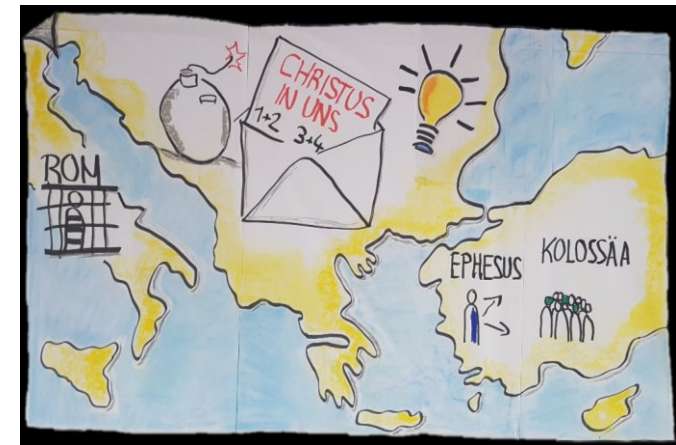 CHRISTUS
IN UNS
1+2 3+4
ROM
EPHESUS
KOLOSSÄA